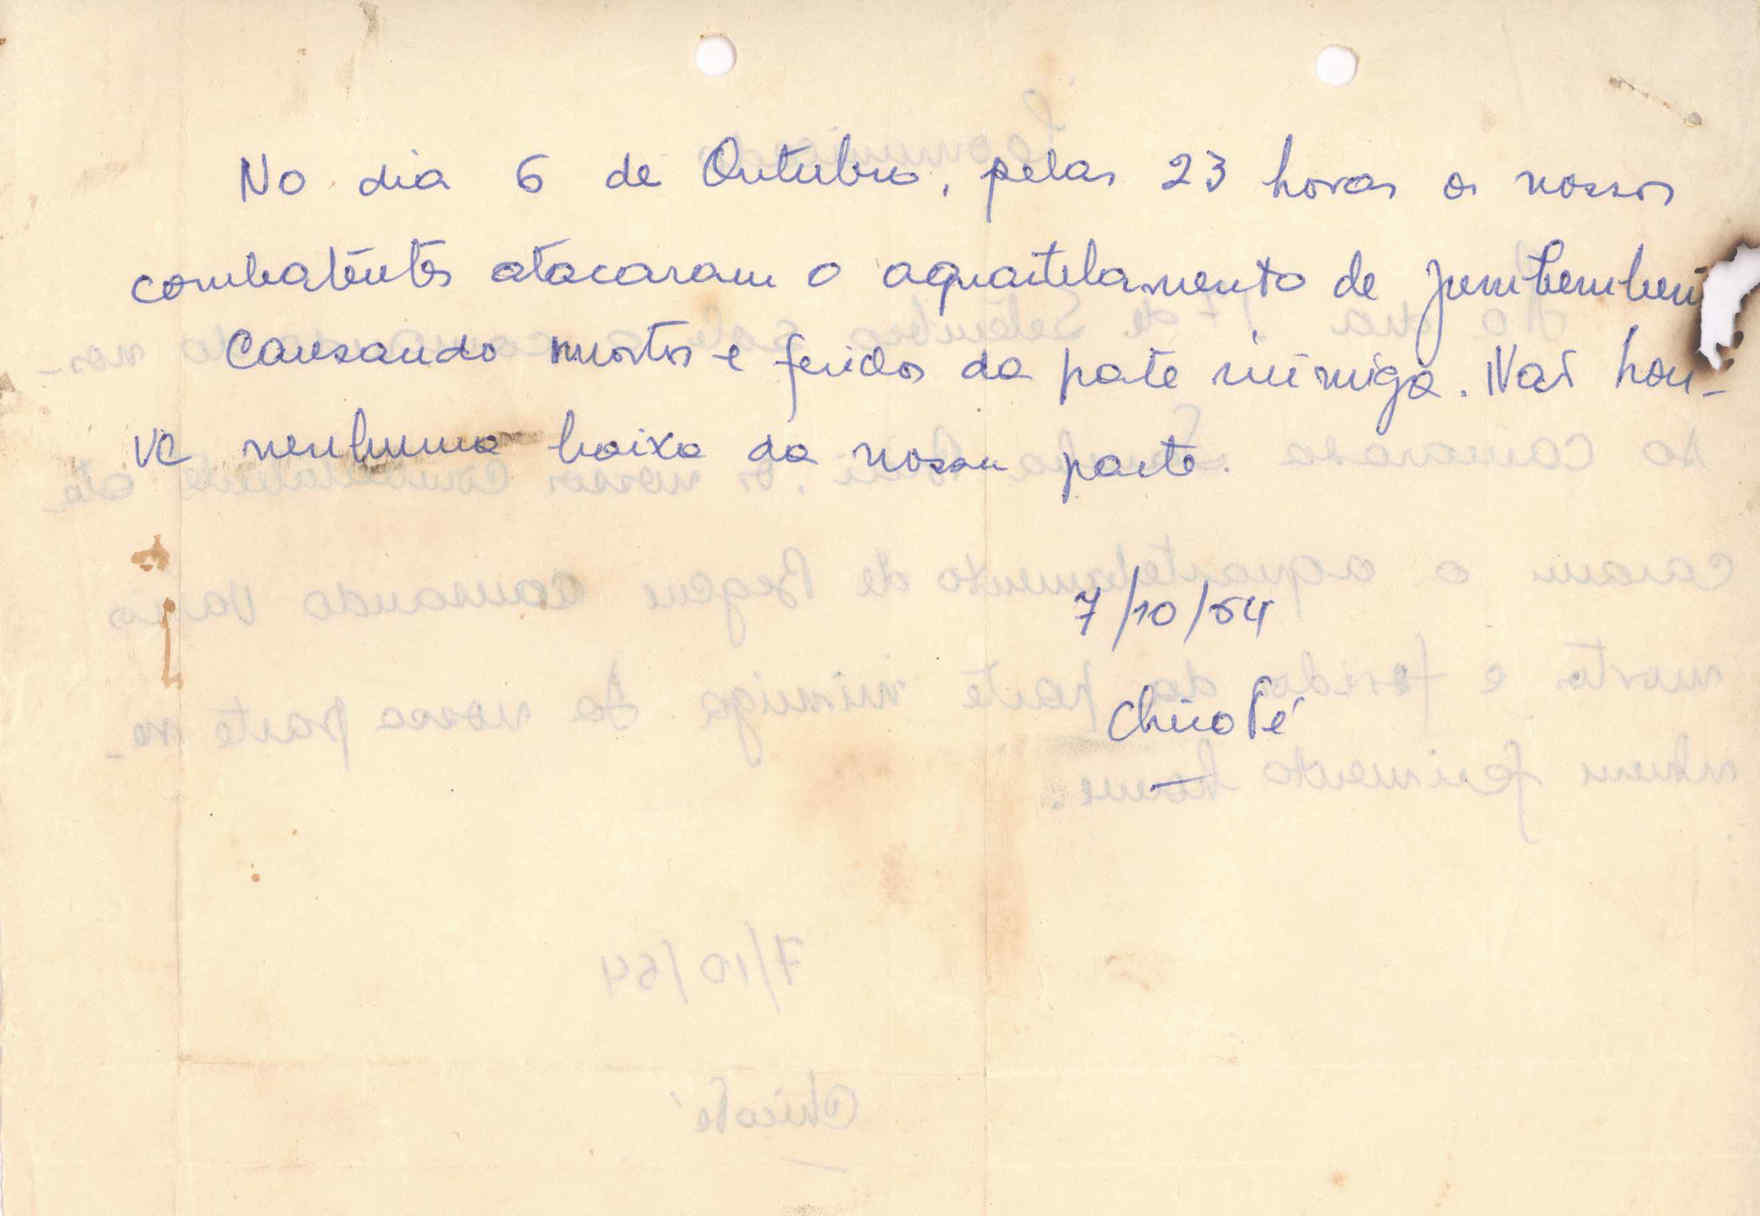 No dia 6 de Outubro, pelas 23 horas os nossos
combatentes atacaram o aquartelamento de Jumbembem
Causando mortos e feridos da parte inimiga. Não hou-
ve nenhuma baixa da nossa parte.
7/10/64
Chico Té